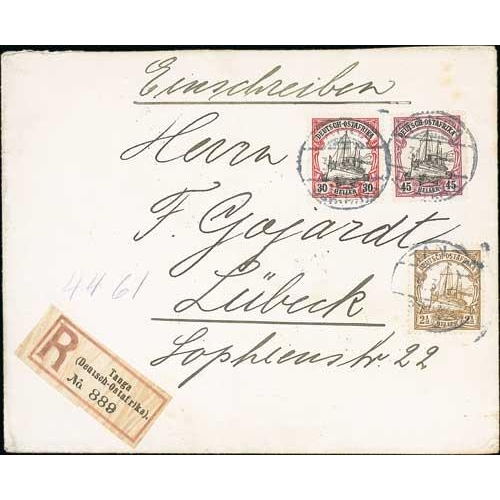 Einschreiben
Herrn
DEUTSCH-OSTAFRIKA
30 30
HELLER
DEUTSCH-OSTAFRIKA
45 45
HELLER
F. Gojardt
Lübeck
Sophienstr. 22
DEUTSCH-OSTAFRIKA
2½ 2½
HELLER
4461
R
Tanga
(Deutsch-Ostafrika).
No 889